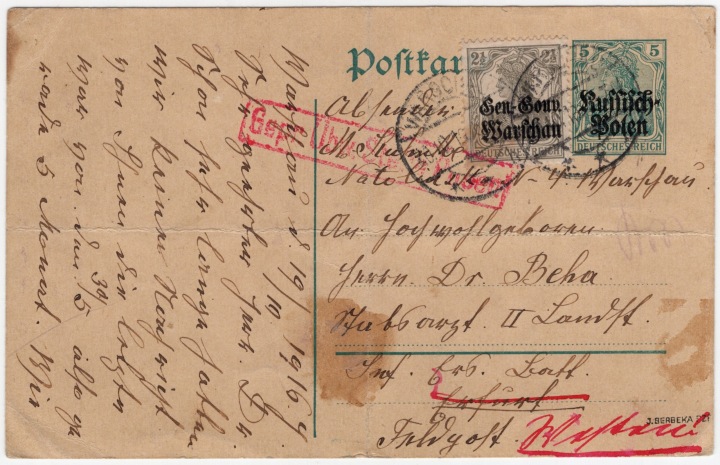 Postkar
5 5
2½ 2½
Gen.-Gouv.
Warschau
DEUTSCHES REICH
Russisch-
Polen
DEUTSCHES REICH
Absender
Natolinska N 4 Warschau.
An Hochwohlgeboren
Herrn Dr. Beha
Stabsarzt II Landst.
Inf. Ers. Batt.
Erfurt
Feldpost. Westen!
J. BERBEKA
Warschau d. 19/10. 1916.
Sehr geehrter Herr Dr
Schon sehr lange haben
wir keine Nachricht
von Ihnen die letzte
war von dem 30/5 also ge
rade 5 Monat. Wir